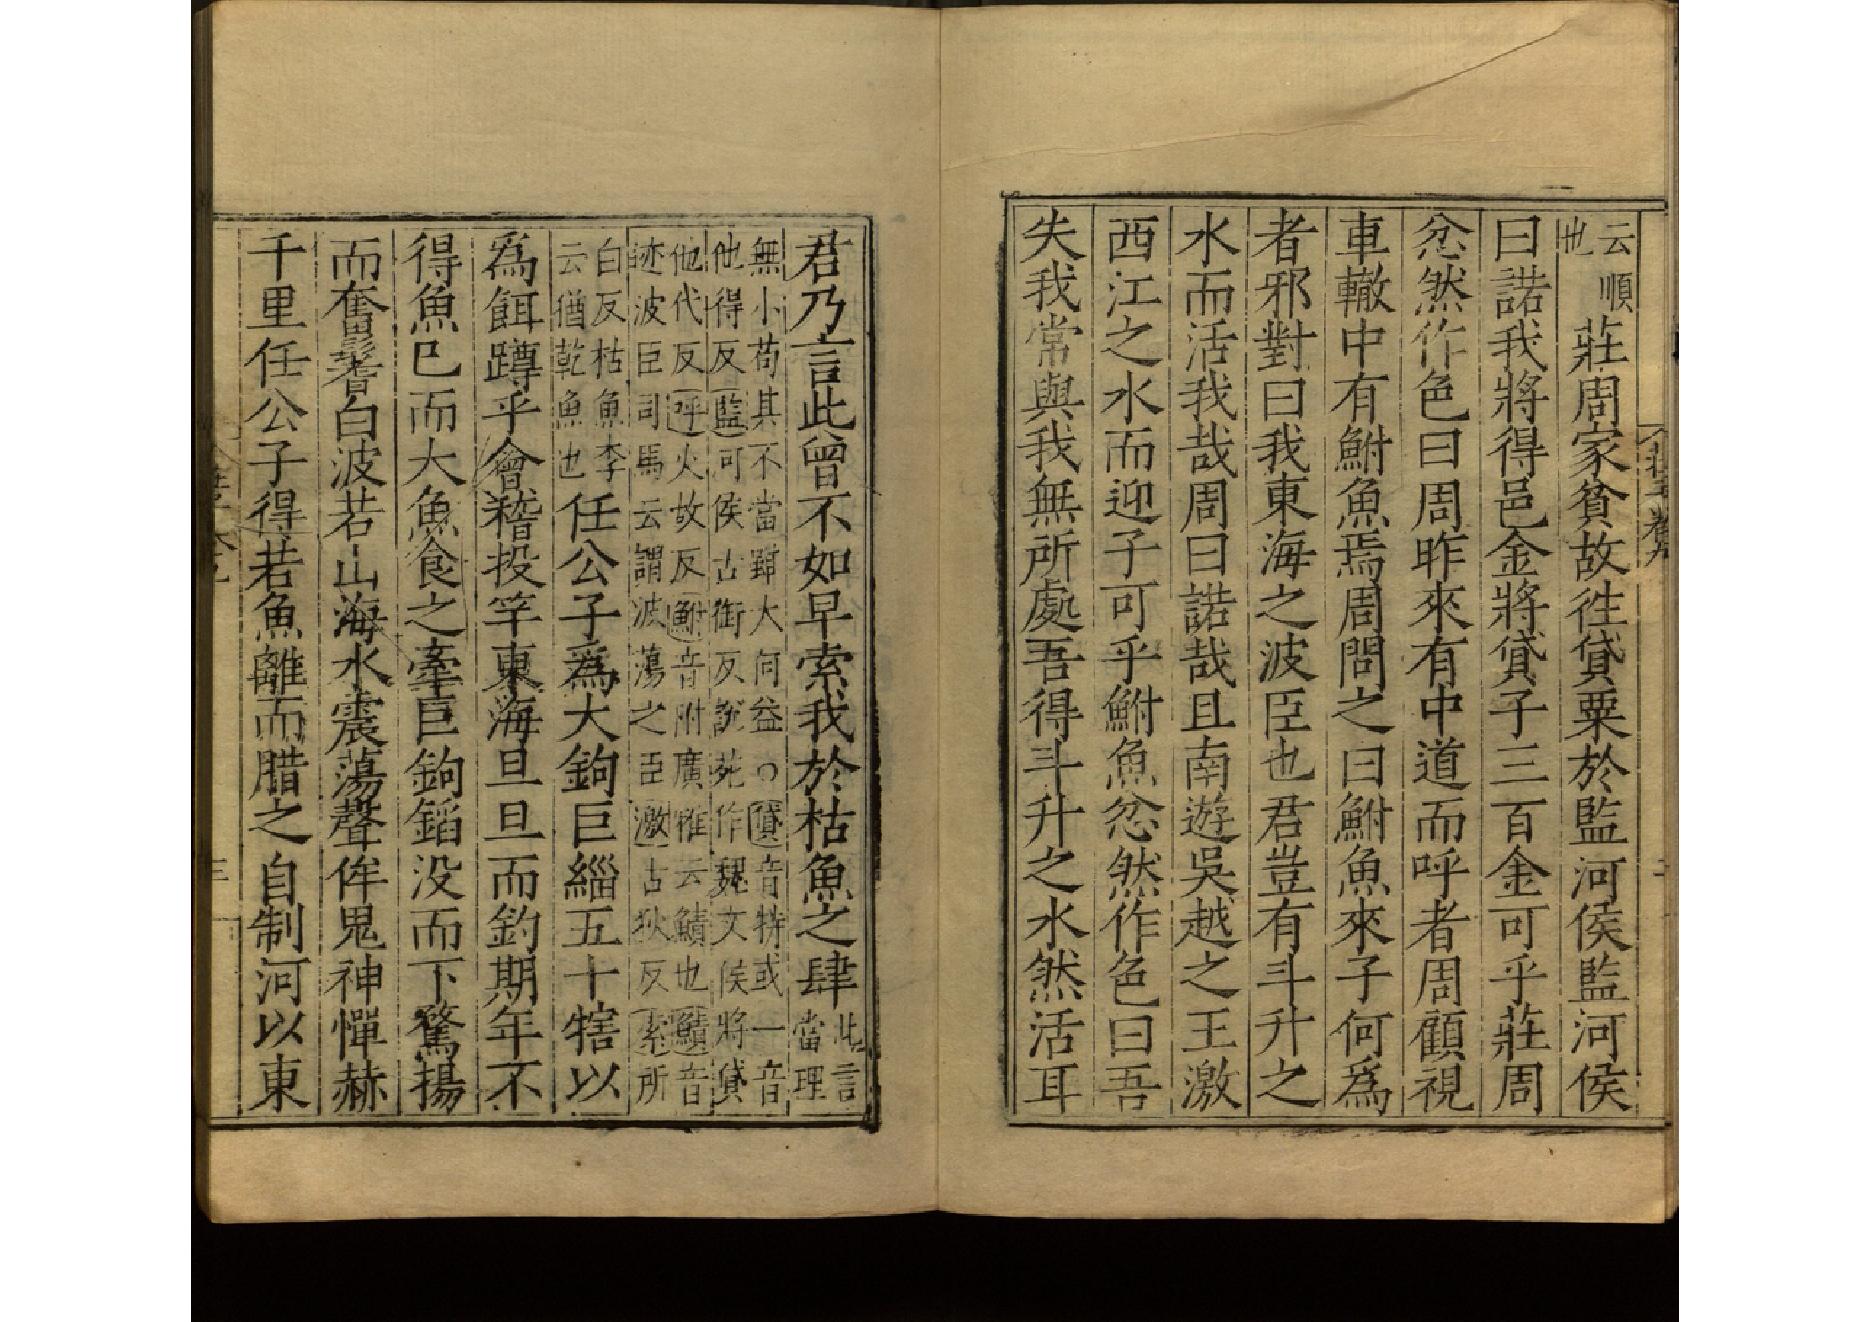 云順
也
莊周家貧故徃貸粟於監河侯監河侯
曰諾我將得邑金將貸子三百金可乎莊周
忿然作色曰周昨來有中道而呼者周顧視
車轍中有鮒魚焉周問之曰鮒魚來子何爲
者邪對曰我東海之波臣也君豈有斗升之
水而活我哉周曰諾哉且南遊吳越之王激
西江之水而迎子可乎鮒魚忿然作色曰吾
失我常與我無所處吾得斗升之水然活耳
君乃言此曾不如早索我於枯魚之肆
此言
當理
無小苟其不當雖大何益○貸音特或一音
他得反監河侯古銜反說苑作魏文侯將貸
他代反呼火故反鮒音附廣雅云鰿也鰿音
迹波臣司馬云謂波蕩之臣激古狄反索所
白反枯魚李
云猶乾魚也
任公子爲大鉤巨緇五十犗以
爲餌蹲乎會稽投竿東海旦旦而釣期年不
得魚巳而大魚食之牽巨鉤錎没而下驚揚
而奮鬐白波若山海水震蕩聲侔鬼神憚赫
千里任公子得若魚離而腊之自制河以東